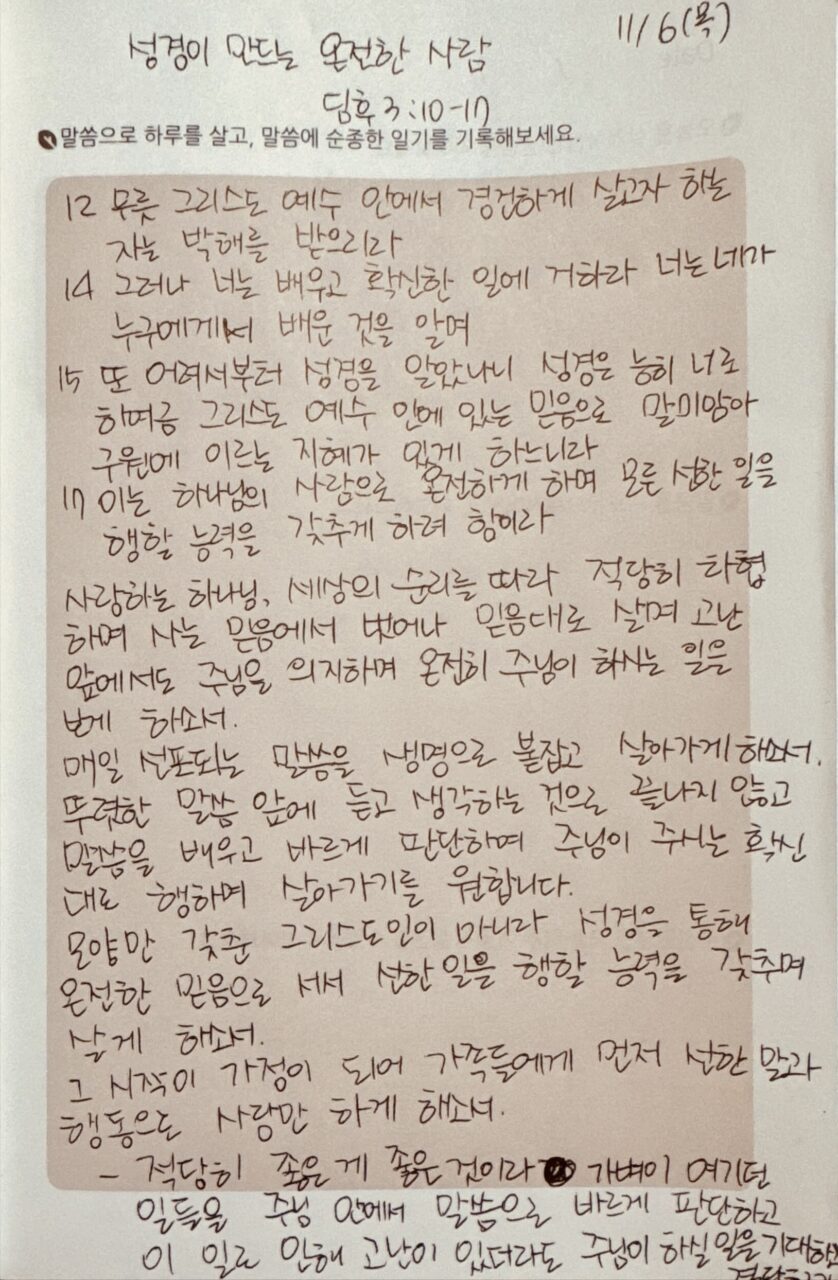 11/6(목)
성경이 만드는 온전한 사람
딤후 3:10-17
말씀으로 하루를 살고, 말씀에 순종한 일기를 기록해보세요.
12 무릇 그리스도 예수 안에서 경건하게 살고자 하는
자는 박해를 받으리라
14 그러나 너는 배우고 확신한 일에 거하라 너는 네가
누구에게서 배운 것을 알며
15 또 어려서부터 성경을 알았나니 성경은 능히 너로
하여금 그리스도 예수 안에 있는 믿음으로 말미암아
구원에 이르는 지혜가 있게 하느니라
17 이는 하나님의 사람으로 온전하게 하며 모든 선한 일을
행할 능력을 갖추게 하려 함이라
사랑하는 하나님, 세상의 순리를 따라 적당히 타협
하며 사는 믿음에서 벗어나 믿음대로 살며 고난
앞에서도 주님을 의지하며 온전히 주님이 하시는 일을
보게 하소서.
매일 선포되는 말씀을 생명으로 붙잡고 살아가게 하소서.
뚜렷한 말씀 앞에 듣고 생각하는 것으로 끝나지 않고
말씀을 배우고 바르게 판단하며 주님이 주시는 확신
대로 행하며 살아가기를 원합니다.
모양만 갖춘 그리스도인이 아니라 성경을 통해
온전한 믿음으로 서서 선한 일을 행할 능력을 갖추며
살게 해소서.
그 시작이 가정이 되어 가족들에게 먼저 선한 말과
행동으로 사랑만 하게 해소서.
- 적당히 좋은 게 좋은 것이라 가벼이 여기던
일들을 주님 안에서 말씀으로 바르게 판단하고
이 일로 인해 고난이 있더라도 주님이 하실 일을 기대하